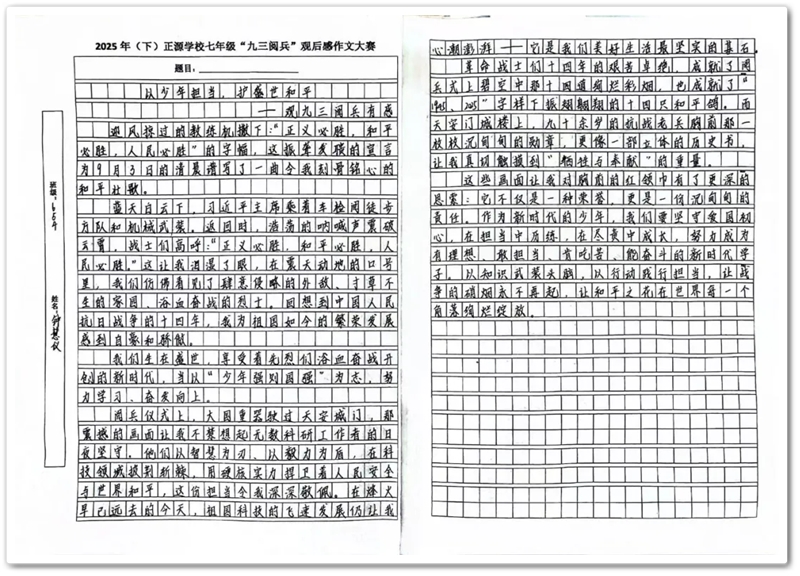 2025年（下）正源学校七年级“九三阅兵”观后感作文大赛
题目：
以少年担当，护盛世和平
——观九三阅兵有感
迎风掠过的教练机撒下：“正义必胜，和平
必胜，人民必胜”的字幅，这振聋发聩的宣言
为9月3日的清晨谱写了一曲令我刻骨铭心的
和平壮歌。
蓝天白云下，习近平主席乘着车检阅徒步
方队和机械式装。返回时，浩荡的呐喊声震破
云霄，战士们高呼：“正义必胜，和平必胜，人
民必胜。”这让我泪湿了眼，在震天动地的口号
里，我们仿佛看见了肆意侵略的外敌、寸草不
生的家园、浴血奋战的烈士。回想到中国人民
抗日战争的十四年，我为祖国如今的繁荣发展
感到自豪和骄傲。
我们生在盛世，享受着先烈们浴血奋战开
创的新时代，当以“少年强则国强”为志，努
力学习、奋发向上。
阅兵仪式上，大国重器驶过天安城门，那
震撼的画面让我不禁想起无数科研工作者的日
夜坚守。他们以智慧为刃、以毅力为盾，在科
技领域披荆斩棘，用硬核实力捍卫着人民安全
与世界和平，这份担当令我深深敬佩。在烽火
早已远去的今天，祖国科技的飞速发展仍让我
班级：
姓名：
心潮澎湃——它是我们美好生活最坚实的基石。
革命战士们十四年的艰苦卓绝，成就了阅
兵式上碧空中那十四道绚烂彩烟，也成就了“
字样下振翅翱翔的十四只和平鸽。而
天安门城楼上，九十余岁的抗战老兵胸前那一
枚枚沉甸甸的勋章，更像一部立体的历史书，
让我真切触摸到“牺牲与奉献”的重量。
这些画面让我对胸前的红领巾有了更深的
感悟：它不仅是一种荣誉，更是一份沉甸甸的
责任。作为新时代的少年，我们要坚守爱国初
心，在担当中历练，在尽责中成长，努力成为
有理想、敢担当、肯吃苦、能奋斗的新时代学
子。以知识武装头脑，以行动践行担当，让战
争的硝烟永不再起，让和平之花在世界每一个
角落绚烂绽放。